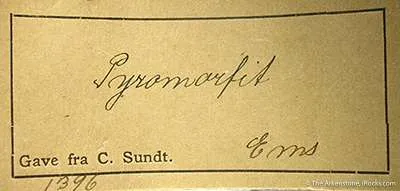 Pyromorfit
Ems
Gave fra C. Sundt.
1396
© The Arkenstone, iRocks.com